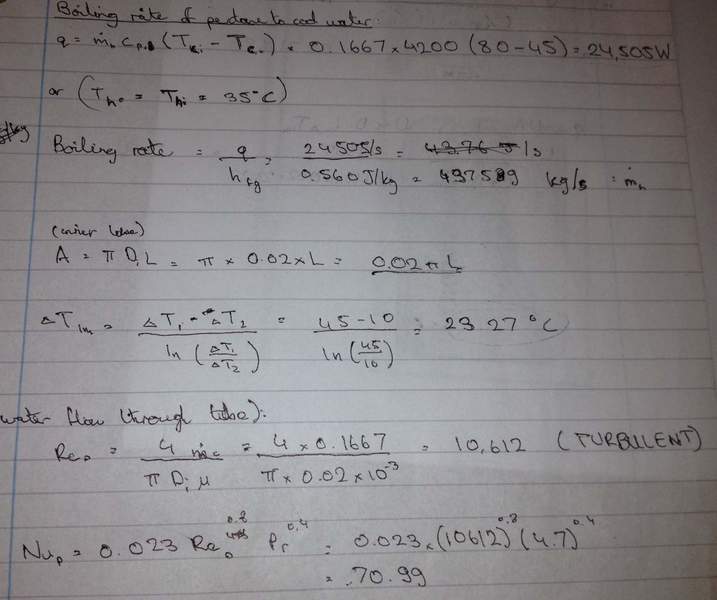 Boiling rate of pentane to cool water:
q = ṁh cp,h (Tc,i − Tc,o) = 0.1667 × 4200 (80−45) = 24,505W
or (Tho = Thi = 35°C)
Boiling rate = q / hfg = 24505/s / 0.560J/kg = 43.76 J/s = 437589 kg/s = ṁh
(inner tube)
A = π Di L = π × 0.02 × L = 0.02π L
ΔTlm = ΔT1 − ΔT2 / ln (ΔT1/ΔT2) = 45−10 / ln (45/10) = 23.27°C
water flow (through tube):
ReD = 4 ṁc / π Di μ = 4 × 0.1667 / π × 0.02 × 10^-3 = 10,612 (TURBULENT)
NuD = 0.023 ReD^0.8 Pr^0.4 = 0.023 × (10612)^0.8 (4.7)^0.4
= 70.99